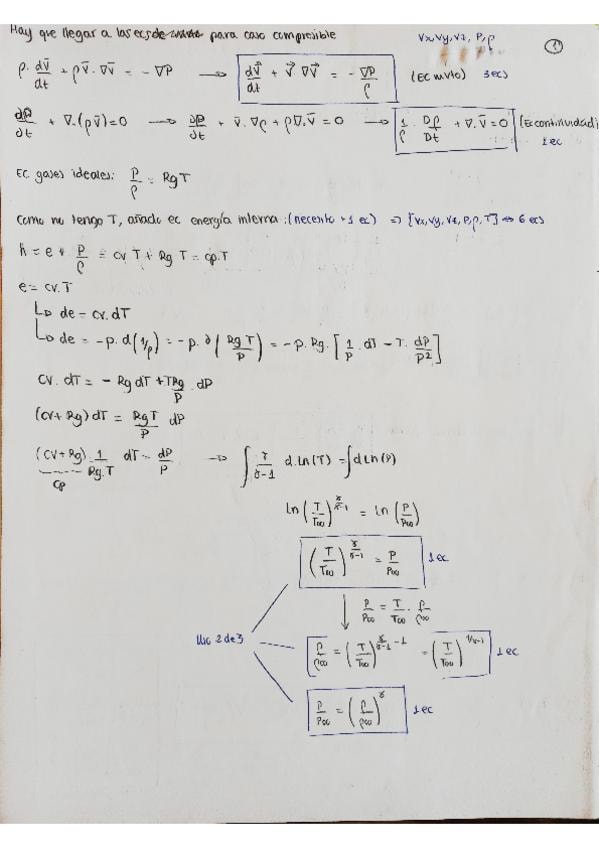 Hay que llegar a las ecs de para caso compresible
Vx, Vy, Vz, P, ρ
1
ρ · dv̄/dt + ρ v̄ · ∇v̄ = -∇P → dv⃗/dt + v⃗ ∇v⃗ = -∇P/ρ (Ec mvto) 3ecs
∂ρ/∂t + ∇·(ρv̄) = 0 → ∂ρ/∂t + v̄ · ∇ρ + ρ∇·v̄ = 0 → 1/ρ · Dρ/Dt + ∇·v̄ = 0 (Ec continuidad) 1ec
EC gases ideales: P/ρ = Rg T
Como no tengo T, añado ec energía interna: (necesito +1 ec) ⇒ [Vx, Vy, Vz, P, ρ, T] ⇔ 6 ecs
h = e + P/ρ = cv T + Rg T = cp. T
e = cv. T
↳ de = cv. dT
↳ de = -p. d(1/ρ) = -p. ∂(Rg T/P) = -p. Rg. [1/P . dT - T. dP/P²]
cv. dT = - Rg dT + TRg/P . dP
(cv + Rg) dT = Rg T/P dP
(cv + Rg) . 1/Rg.T dT = dP/P → ∫ γ/γ-1 d. Ln(T) = ∫ d Ln(P)
Cp
Ln (T/T∞)^γ/γ-1 = Ln (P/P∞)
(T/T∞)^γ/γ-1 = P/P∞ 1ec
P/P∞ = T/T∞ . ρ/ρ∞
Uso 2 de 3
ρ/ρ∞ = (T/T∞)^γ/γ-1 - 1 = (T/T∞)^1/γ-1 1ec
P/P∞ = (ρ/ρ∞)^γ 1ec